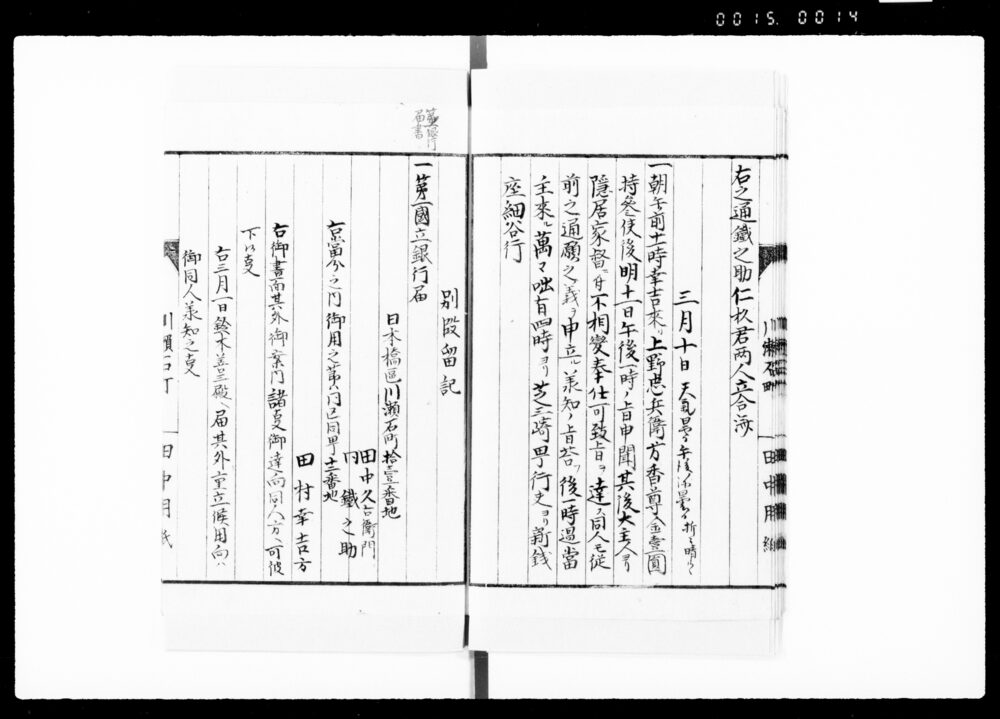 0015.0014
右之通鐵之助仁杦君两人立合済
三月十日 天氣曇ク午後
一朝午前十一時幸吉來リ上野忠兵衛方香奠金壹圓
持参使後明十一日午後一時ノ旨申聞其後大主人ヨリ
隠居家督ニ付不相變奉仕可致旨ヲ達ス同人モ従
前之通願之義ヲ申立ル承知ノ旨答フ後一時過當
主來ル萬マ咄有四時ヨリ芝三崎甼行夫ヨリ新銭
座細谷行
川瀬石町
田中用紙
別段留記
第一銀行
届書
一第一國立銀行届
日本橋區川瀬石町拾壹番地
田中久右衛門
内 鐵之助
右當分之内御用之節ハ同區同甼十二番地
田村幸吉方
右御書面其外御案内諸事御達向同人方ヘ可被
下候事
右三月一日鈴木善三殿ヘ届其外重立候用向ハ
御同人承知之事
川瀬石町
田中用紙